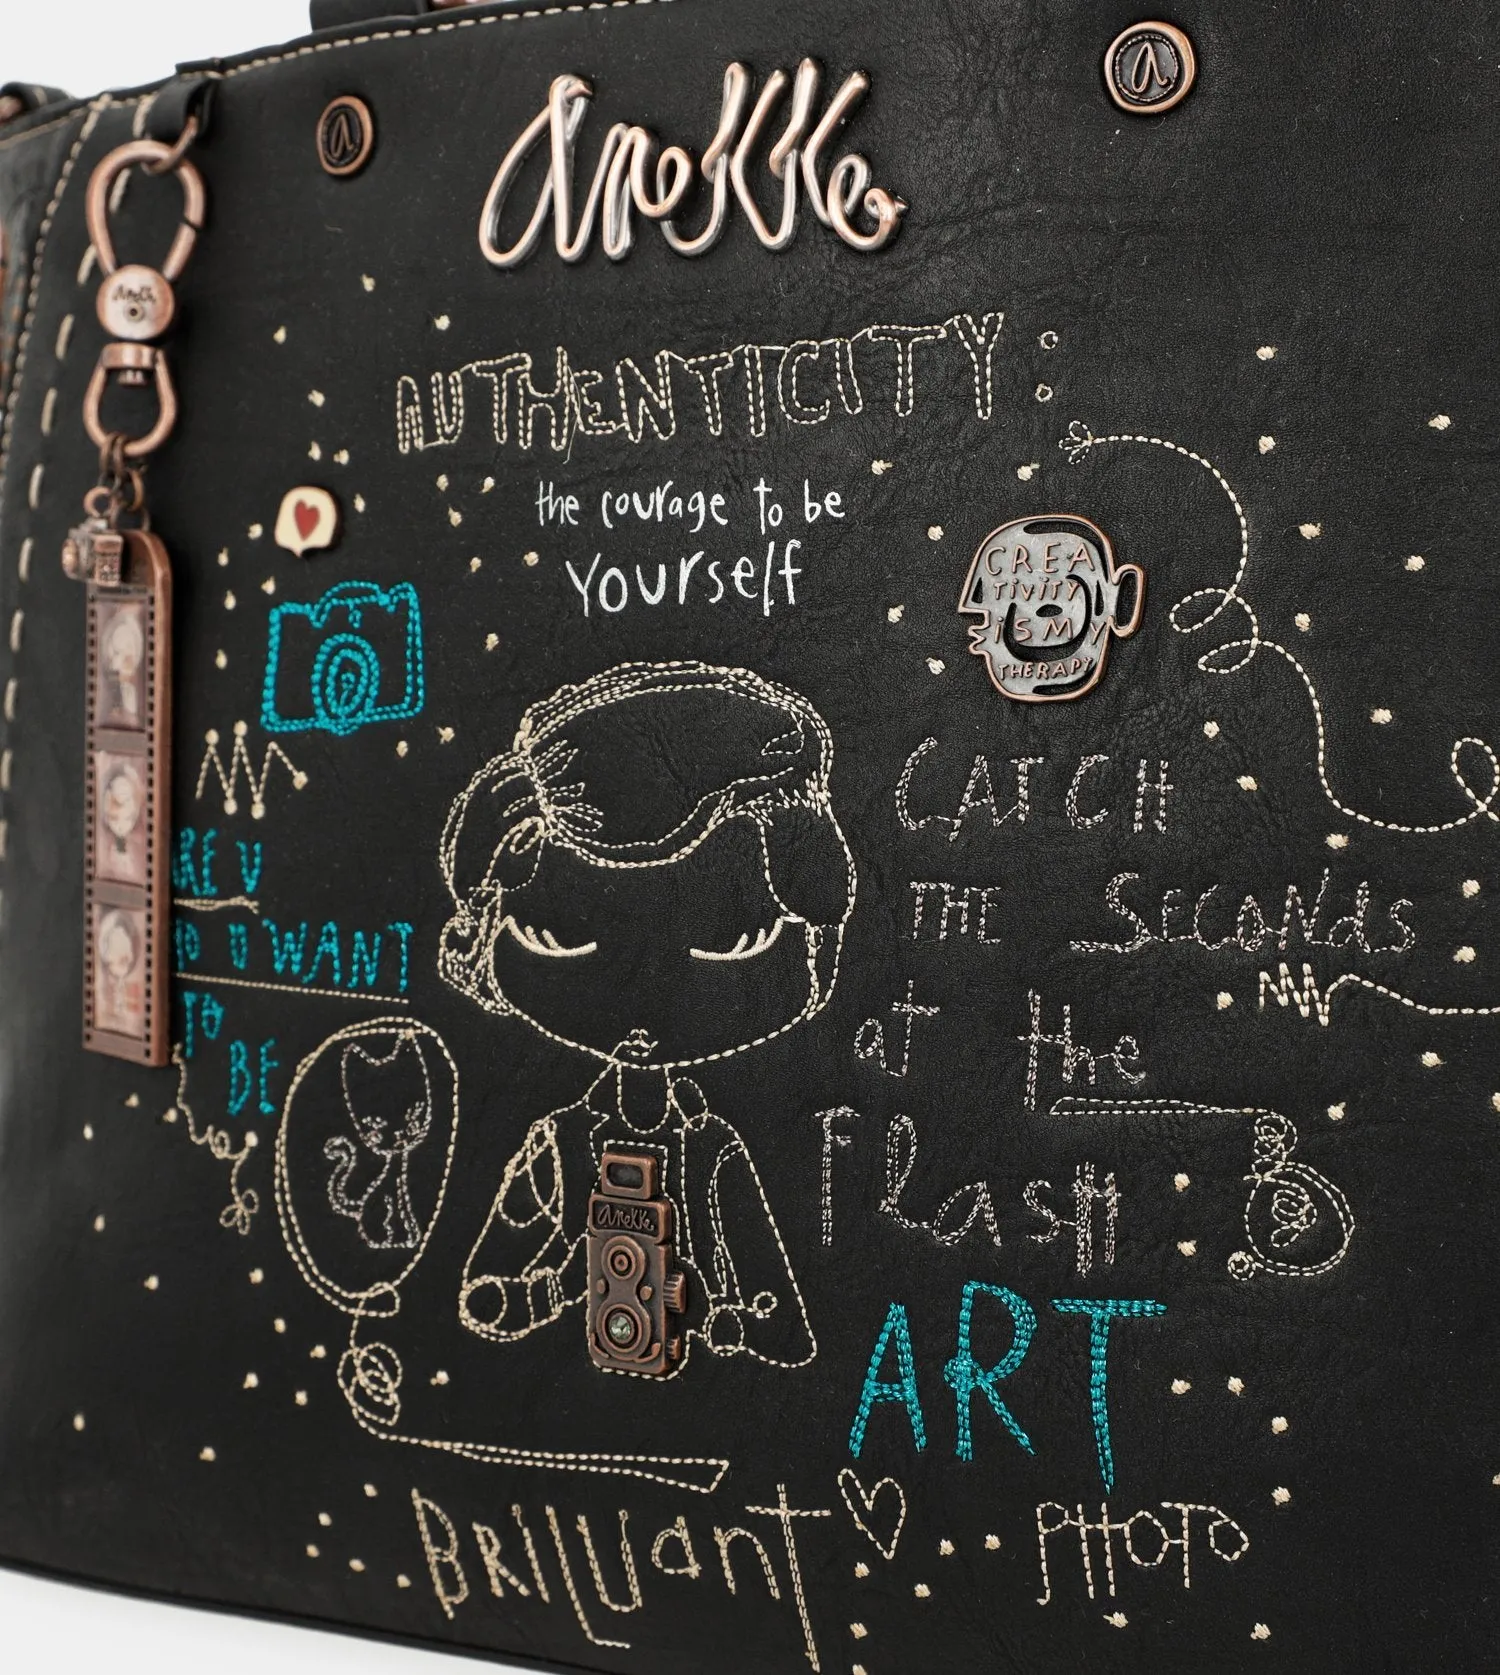 a
a
anekke
anekke
AUTHENTICITY:
the courage to be
yourself
CREA
TiViTY
iS MY
THERAPY
CATCH
THE SECONds
at the
FlasH
ART
RE U
U WANT
TO
BE
anekke
BRILLIanT
PHOTO